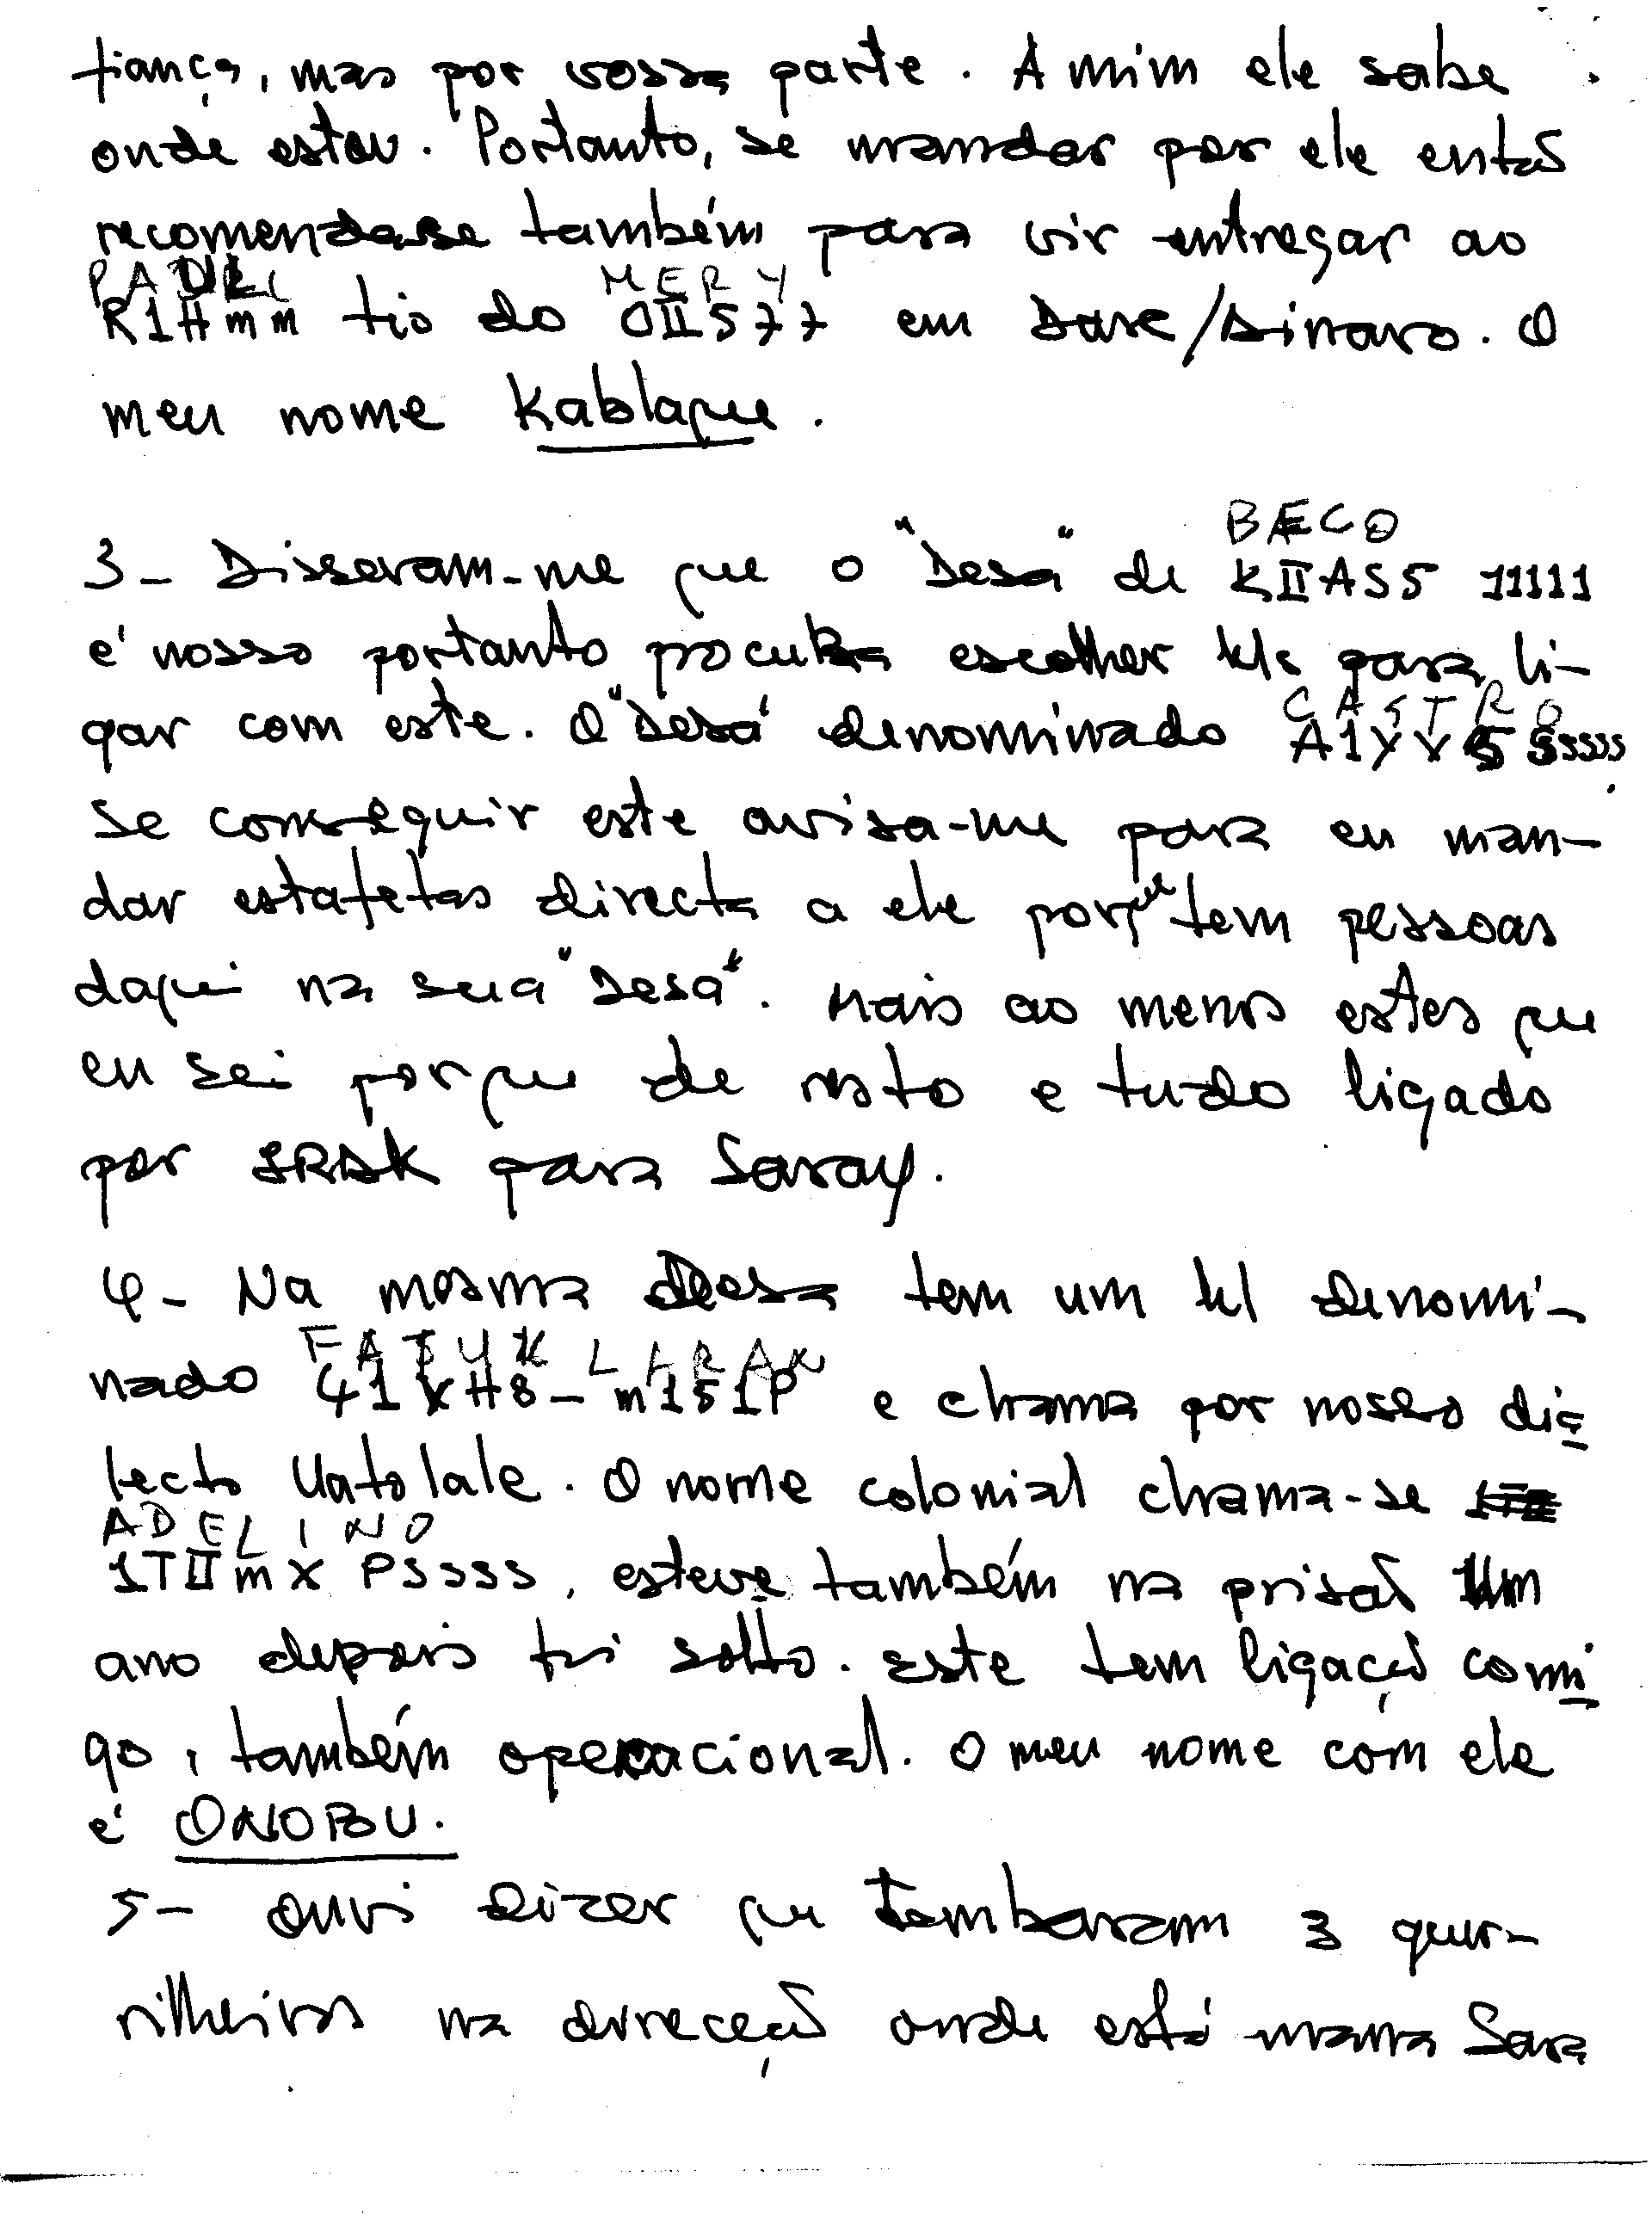 fiança, mas por vossa parte. A mim ele sabe
onde estou. Portanto, se mandar por ele entaõ
recomendasse também para vir entregar ao
MERY
R1Hmm tio do OII577 em Dare/Dinaro. O
meu nome Kablaque.
BECO
3- Disseram-me que o "Desa" de KIIAS5 11111
é nosso portanto procura escolher kls para li-
CASTRO
gar com este. O "Desa" denominado A1YY
se conseguir este avisa-me para eu man-
dar estafetas directa a ele porque tem pessoas
daqui na sua "Desa". Mais ao menos estes que
eu sei porque de resto e tudo ligado
por para Saray.
4- Na mesma desa tem um kl denomi-
FATUK LARAN
nado 41XH8-m151P e chama por nosso dia
lecto Uatolale. O nome colonial chama-se
ADELINO
1TIImX PSSSS, esteve também na prisaõ um
ano depois foi solto. Este tem ligaçaõ comi
go, também operacional. O meu nome com ele
é ONOBU.
5- Ouvi dizer que tombaram 3 guer-
rilheiros na direcçaõ onde está mana Sara